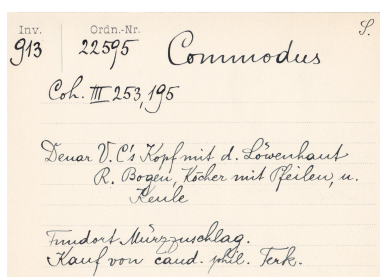 Inv. Ordn.-Nr. S.
913 22595 Commodus
Coh. III 253, 195
Denar V. C's Kopf mit d. Löwenhaut
R. Bogen, Köcher mit Pfeilen, u.
Keule
Fundort Mürzzuschlag.
Kauf von cand. phil. Terk.